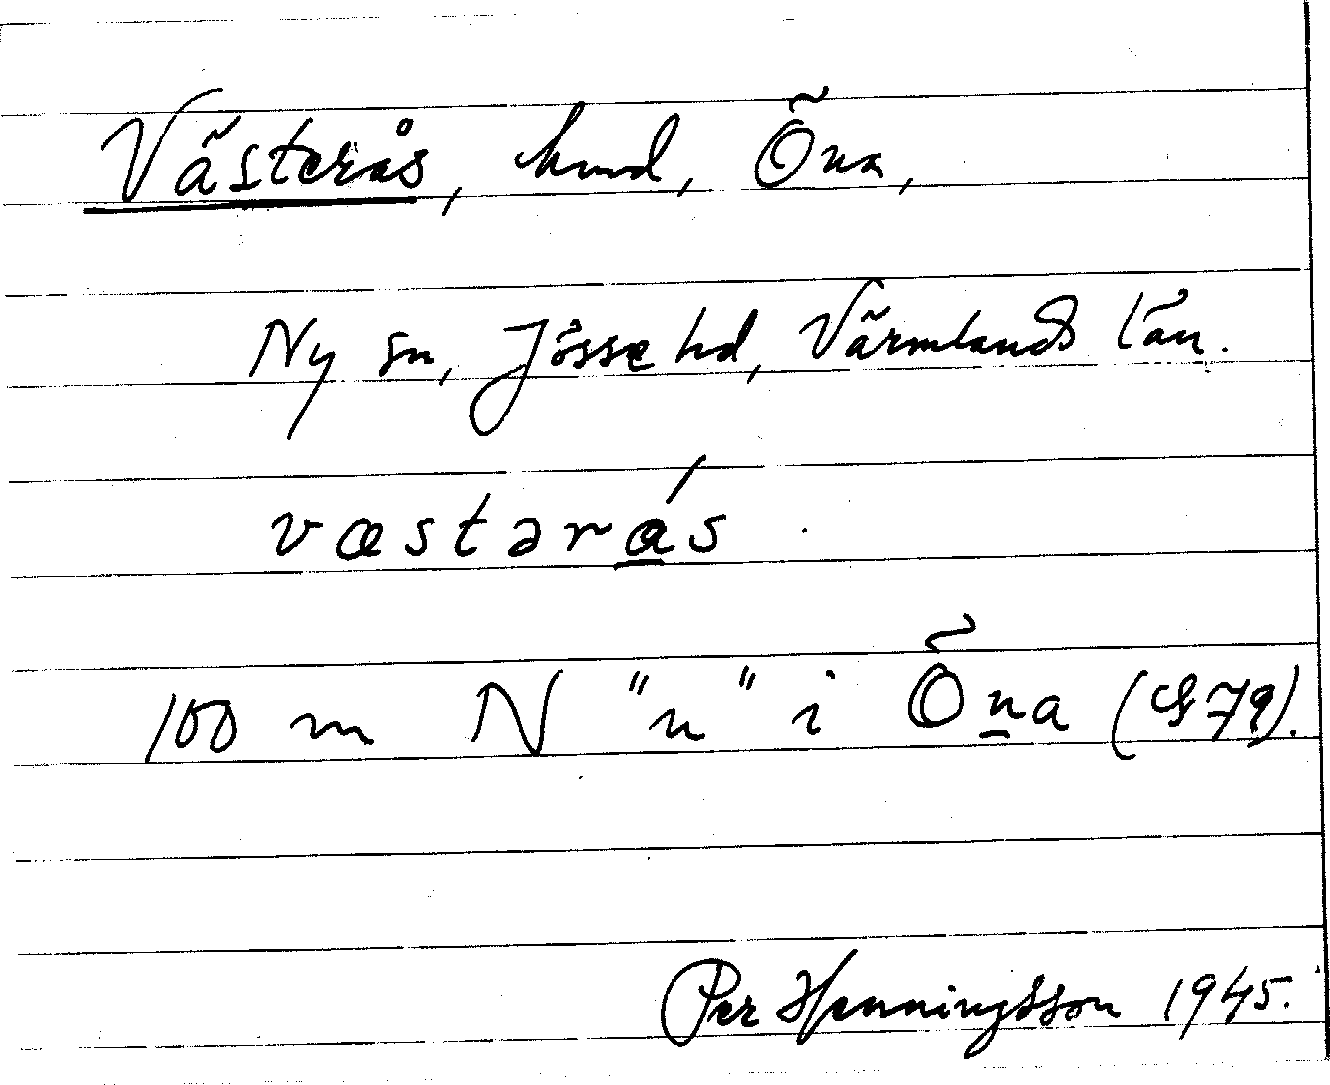 Västerås, hmd, Öna,
Ny sn, Jösse hd, Värmlands län.
væstərás
100 m N "n" i Öna (G79).
Per Henningsson 1945.